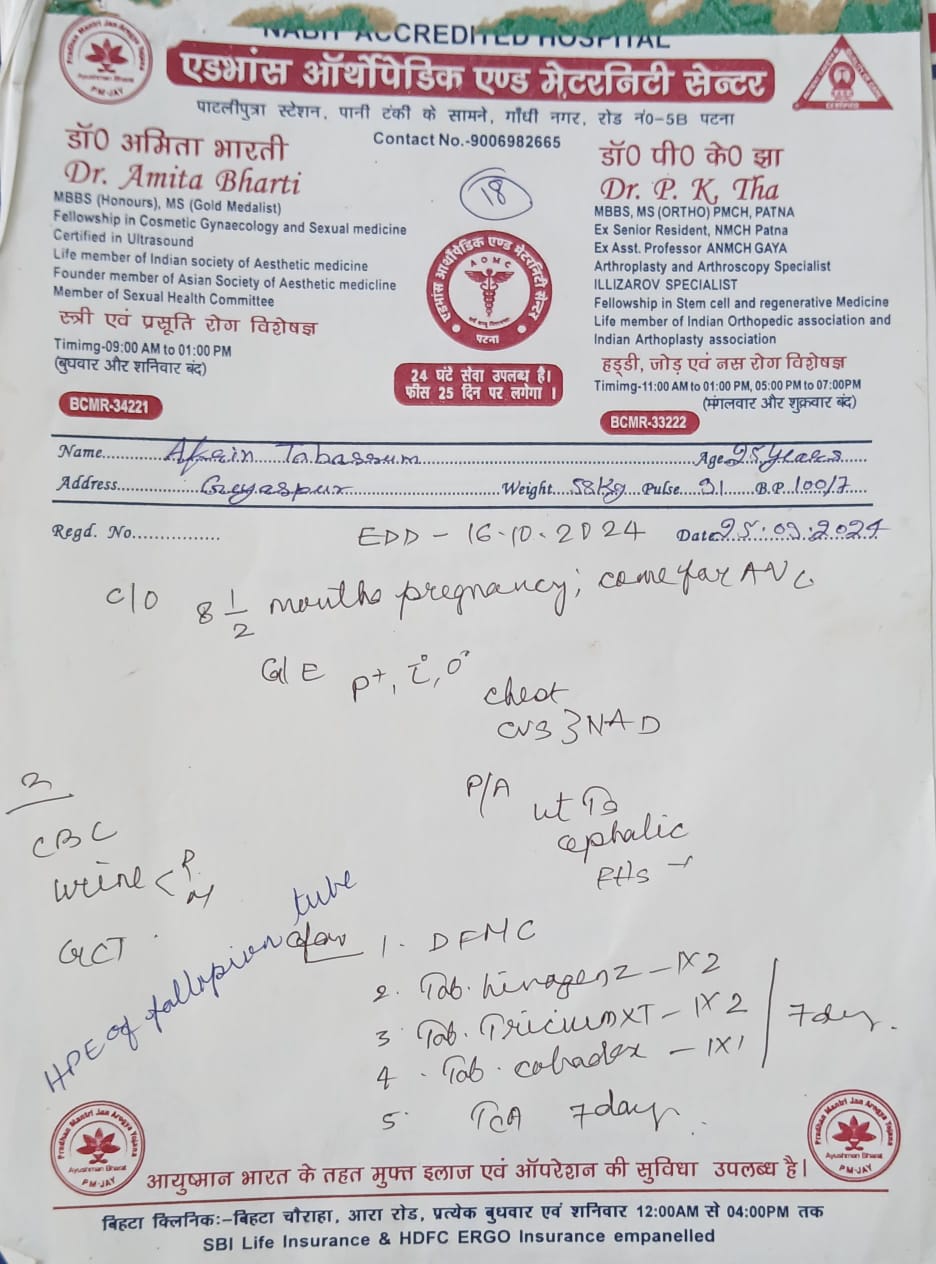 NABH ACCREDITED HOSPITAL
एडभांस ऑर्थोपेडिक एण्ड मेटरनिटी सेन्टर
पाटलीपुत्रा स्टेशन, पानी टंकी के सामने, गाँधी नगर, रोड नं0-5B पटना
Contact No.-9006982665
डॉ0 अमिता भारती
Dr. Amita Bharti
MBBS (Honours), MS (Gold Medalist)
Fellowship in Cosmetic Gynaecology and Sexual medicine
Certified in Ultrasound
Life member of Indian society of Aesthetic medicine
Founder member of Asian Society of Aesthetic medicline
Member of Sexual Health Committee
स्त्री एवं प्रसूति रोग विशेषज्ञ
Timimg-09:00 AM to 01:00 PM
(बुधवार और शनिवार बंद)
BCMR-34221
18
एडभांस ऑर्थोपेडिक एण्ड मेटरनिटी सेन्टर
AOMC
पटना
24 घंटे सेवा उपलब्ध है।
फीस 25 दिन पर लगेगा ।
डॉ0 पी0 के0 झा
Dr. P. K, Tha
MBBS, MS (ORTHO) PMCH, PATNA
Ex Senior Resident, NMCH Patna
Ex Asst. Professor ANMCH GAYA
Arthroplasty and Arthroscopy Specialist
ILLIZAROV SPECIALIST
Fellowship in Stem cell and regenerative Medicine
Life member of Indian Orthopedic association and
Indian Arthoplasty association
हड्डी, जोड़ एवं नस रोग विशेषज्ञ
Timimg-11:00 AM to 01:00 PM, 05:00 PM to 07:00PM
(मंगलवार और शुक्रवार बंद)
BCMR-33222
Name Afrin Tabassum Age 25 Years
Address Greyaspur Weight 58Kg Pulse 91 B.P. 100/7
Regd. No. EDD - 16.10.2024 Date 25.09.2024
C/O 8 1/2 months pregnancy; come for ANC
G/E P+,
chest
CVS } NAD
P/A ut
cephalic
FHS
CBC
Urine
GCT
HPE of fallopion tube
1. DFMC
2. Tab. - 1X2
3. Tab. - 1X2
4. Tab. cobadex - 1X1
7 day.
5. 7 day.
Pradhan Mantri Jan Arogya Yojana
Ayushman Bharat
PM-JAY
आयुष्मान भारत के तहत मुफ्त इलाज एवं ऑपरेशन की सुविधा उपलब्ध है।
बिहटा क्लिनिकः-बिहटा चौराहा, आरा रोड, प्रत्येक बुधवार एवं शनिवार 12:00AM से 04:00PM तक
SBI Life Insurance & HDFC ERGO Insurance empanelled